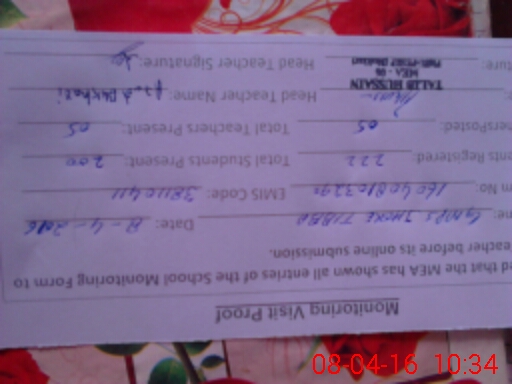 Monitoring Visit Proof
ed that the MEA has shown all entries of the School Monitoring Form to
Teacher before its online submission.
me: GMPS JHOKE TIBBA Date: 8-4-2016
m No: EMIS Code: 38110411
nts Registered: 222 Total Students Present: 200
hersPosted: 05 Total Teachers Present: 05
Head Teacher Name:
TALIB HUSSAIN
MEA - 06
ture: Head Teacher Signature:
08-04-16 10:34